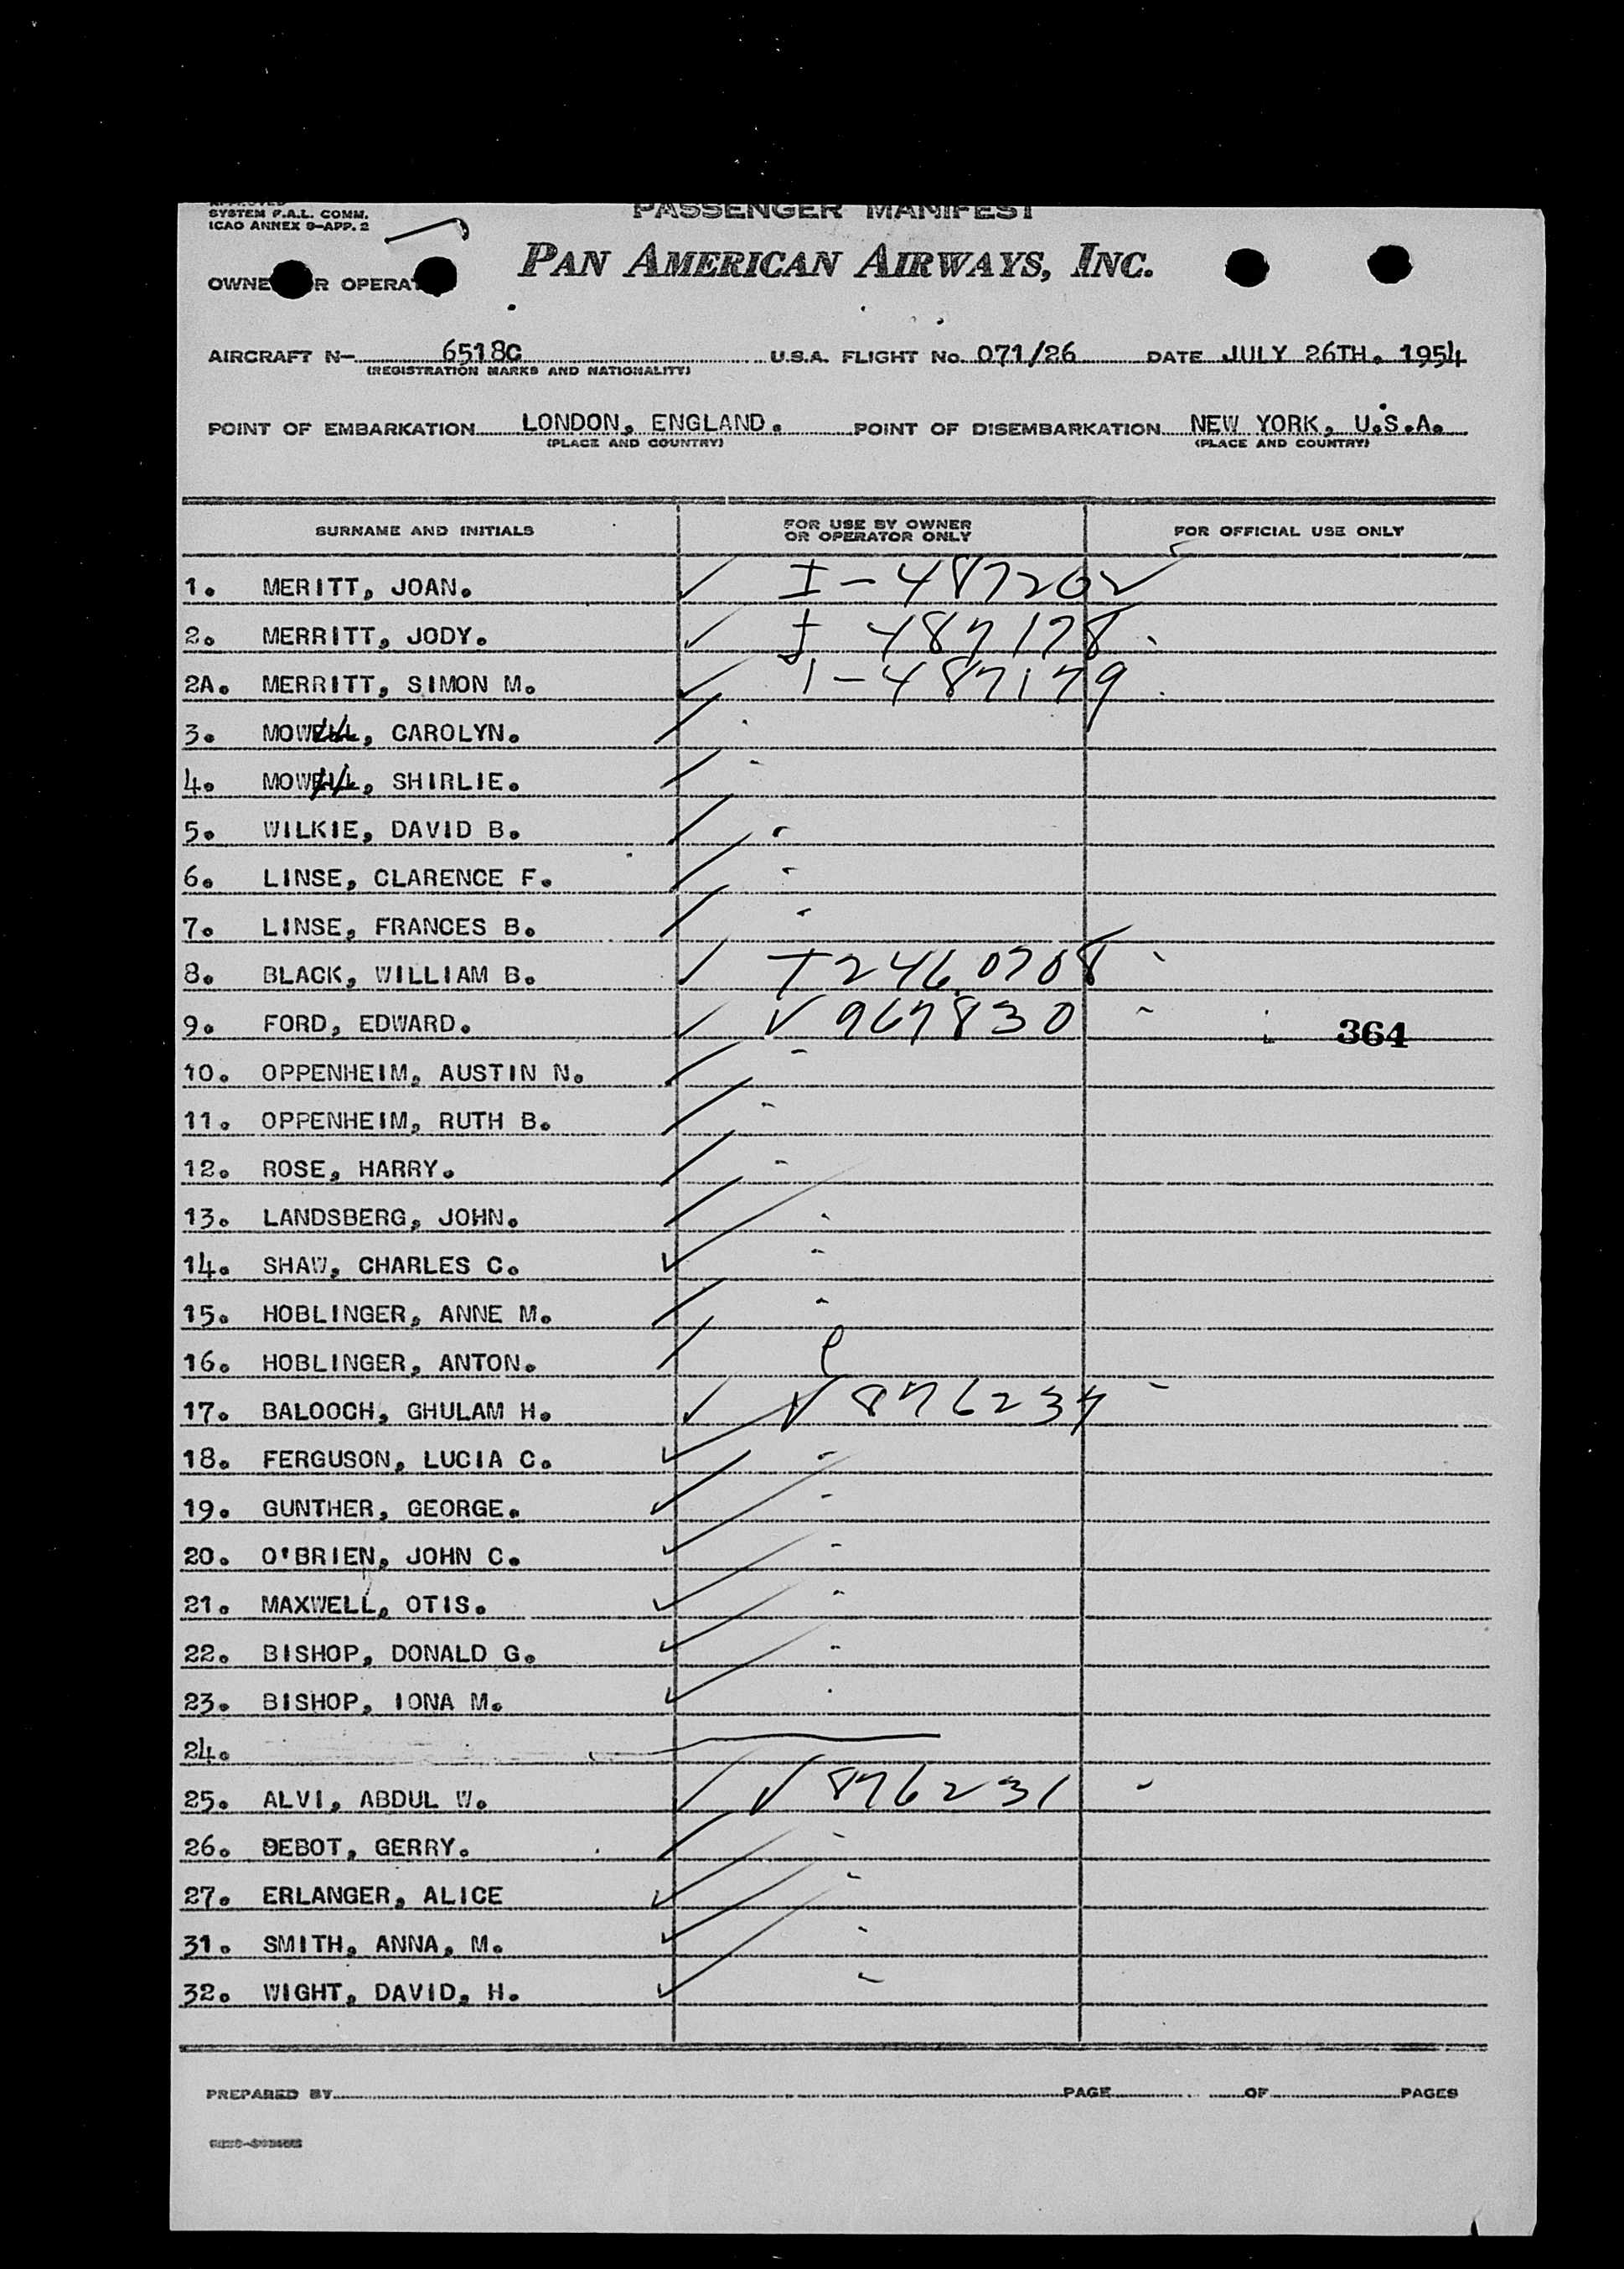 SYSTEM F.A.L. COMM.
ICAO ANNEX 9-APP. 2
PASSENGER MANIFEST
PAN AMERICAN AIRWAYS, INC.
AIRCRAFT N- 6518C U.S.A. FLIGHT No. 071/26 DATE JULY 26TH. 1954
(REGISTRATION MARKS AND NATIONALITY)
POINT OF EMBARKATION LONDON, ENGLAND. POINT OF DISEMBARKATION NEW YORK, U.S.A.
(PLACE AND COUNTRY) (PLACE AND COUNTRY)
SURNAME AND INITIALS FOR USE BY OWNER OR OPERATOR ONLY FOR OFFICIAL USE ONLY
1. MERITT, JOAN. ✓ I-487202
2. MERRITT, JODY. ✓ I 487178
2A. MERRITT, SIMON M. ✓ I-487179
3. CAROLYN.
4. SHIRLIE.
5. WILKIE, DAVID B.
6. LINSE, CLARENCE F.
7. LINSE, FRANCES B.
8. BLACK, WILLIAM B. ✓ I 2460708
9. FORD, EDWARD. ✓ V 967830 364
10. OPPENHEIM, AUSTIN N.
11. OPPENHEIM, RUTH B.
12. ROSE, HARRY.
13. LANDSBERG, JOHN.
14. SHAW, CHARLES C. ✓
15. HOBLINGER, ANNE M.
16. HOBLINGER, ANTON.
17. BALOOCH, GHULAM H. ✓ V 876237
18. FERGUSON, LUCIA C. ✓
19. GUNTHER, GEORGE. ✓
20. O'BRIEN, JOHN C. ✓
21. MAXWELL, OTIS. ✓
22. BISHOP, DONALD G. ✓
23. BISHOP, IONA M. ✓
24.
25. ALVI, ABDUL W. ✓ V 876231
26. DEBOT, GERRY.
27. ERLANGER, ALICE ✓
31. SMITH, ANNA, M. ✓
32. WIGHT, DAVID, H. ✓
PREPARED BY PAGE OF PAGES